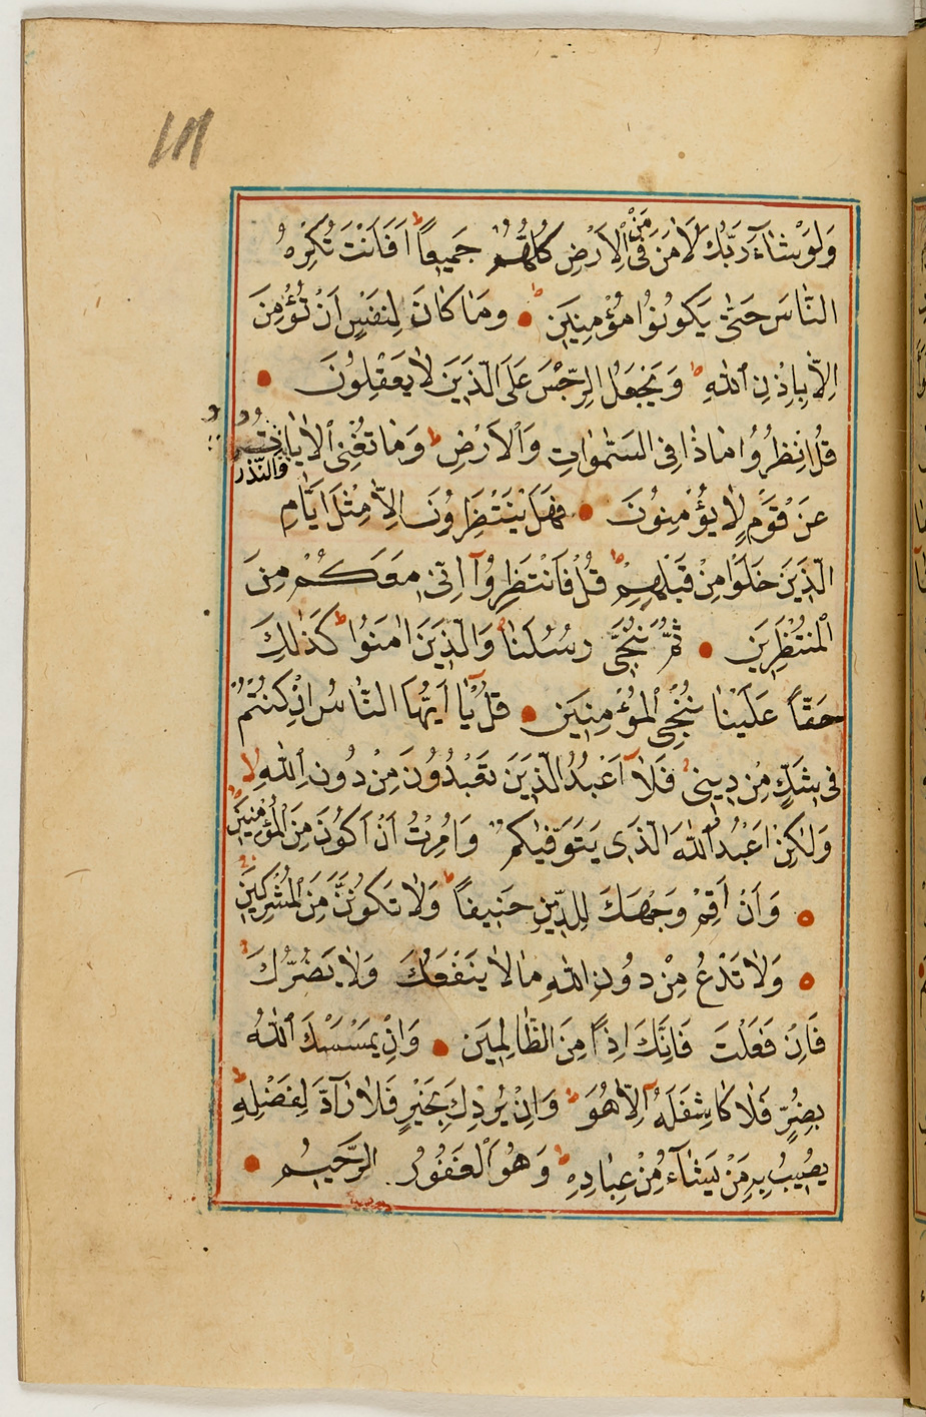 ١١١
وَلَوْ شَاۤءَ رَبُّكَ لَاٰمَنَ مَنْ فِى الْاَرْضِ كُلُّهُمْ جَمِيعًا ط اَفَاَنْتَ تُكْرِهُ
النَّاسَ حَتّٰى يَكُونُوا مُؤْمِنِينَ ط وَمَا كَانَ لِنَفْسٍ اَنْ تُؤْمِنَ
اِلَّا بِاِذْنِ اللّٰهِ ط وَيَجْعَلُ الرِّجْسَ عَلَى الَّذِينَ لَا يَعْقِلُونَ
قُلِ انْظُرُوا مَاذَا فِى السَّمٰوَاتِ وَالْاَرْضِ ط وَمَا تُغْنِى الْاٰيَاتُ وَالنُّذُرُ
عَنْ قَوْمٍ لَا يُؤْمِنُونَ فَهَلْ يَنْتَظِرُونَ اِلَّا مِثْلَ اَيَّامِ
الَّذِينَ خَلَوْا مِنْ قَبْلِهِمْ ط قُلْ فَانْتَظِرُوۤا اِنِّى مَعَكُمْ مِنَ
الْمُنْتَظِرِينَ ثُمَّ نُنَجِّى رُسُلَنَا وَالَّذِينَ اٰمَنُوا ط كَذٰلِكَ
حَقًّا عَلَيْنَا نُنْجِى الْمُؤْمِنِينَ قُلْ يَاۤ اَيُّهَا النَّاسُ اِنْ كُنْتُمْ
فِى شَكٍّ مِنْ دِينِى فَلَاۤ اَعْبُدُ الَّذِينَ تَعْبُدُونَ مِنْ دُونِ اللّٰهِ لا
وَلٰكِنْ اَعْبُدُ اللّٰهَ الَّذِى يَتَوَفّٰيكُمْ وَاُمِرْتُ اَنْ اَكُونَ مِنَ الْمُؤْمِنِينَ
وَاَنْ اَقِمْ وَجْهَكَ لِلدِّينِ حَنِيفًا ط وَلَا تَكُونَنَّ مِنَ الْمُشْرِكِينَ
وَلَا تَدْعُ مِنْ دُونِ اللّٰهِ مَا لَا يَنْفَعُكَ وَلَا يَضُرُّكَ
فَاِنْ فَعَلْتَ فَاِنَّكَ اِذًا مِنَ الظَّالِمِينَ وَاِنْ يَمْسَسْكَ اللّٰهُ
بِضُرٍّ فَلَا كَاشِفَ لَهُۤ اِلَّا هُوَ ط وَاِنْ يُرِدْكَ بِخَيْرٍ فَلَا رَاۤدَّ لِفَضْلِهِ ط
يُصِيبُ بِهِ مَنْ يَشَاۤءُ مِنْ عِبَادِهِ ط وَهُوَ الْغَفُورُ الرَّحِيمُ